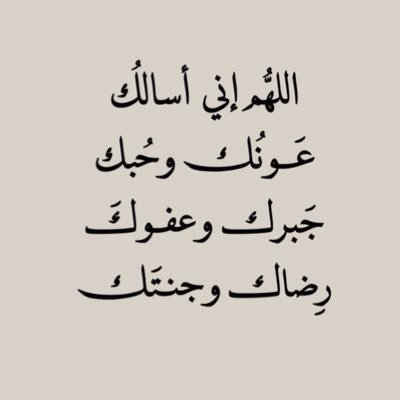 اللهُم إني أسالُك
عَونُك وحُبك
جَبرك وعفوكَ
رِضاك وجنتَك